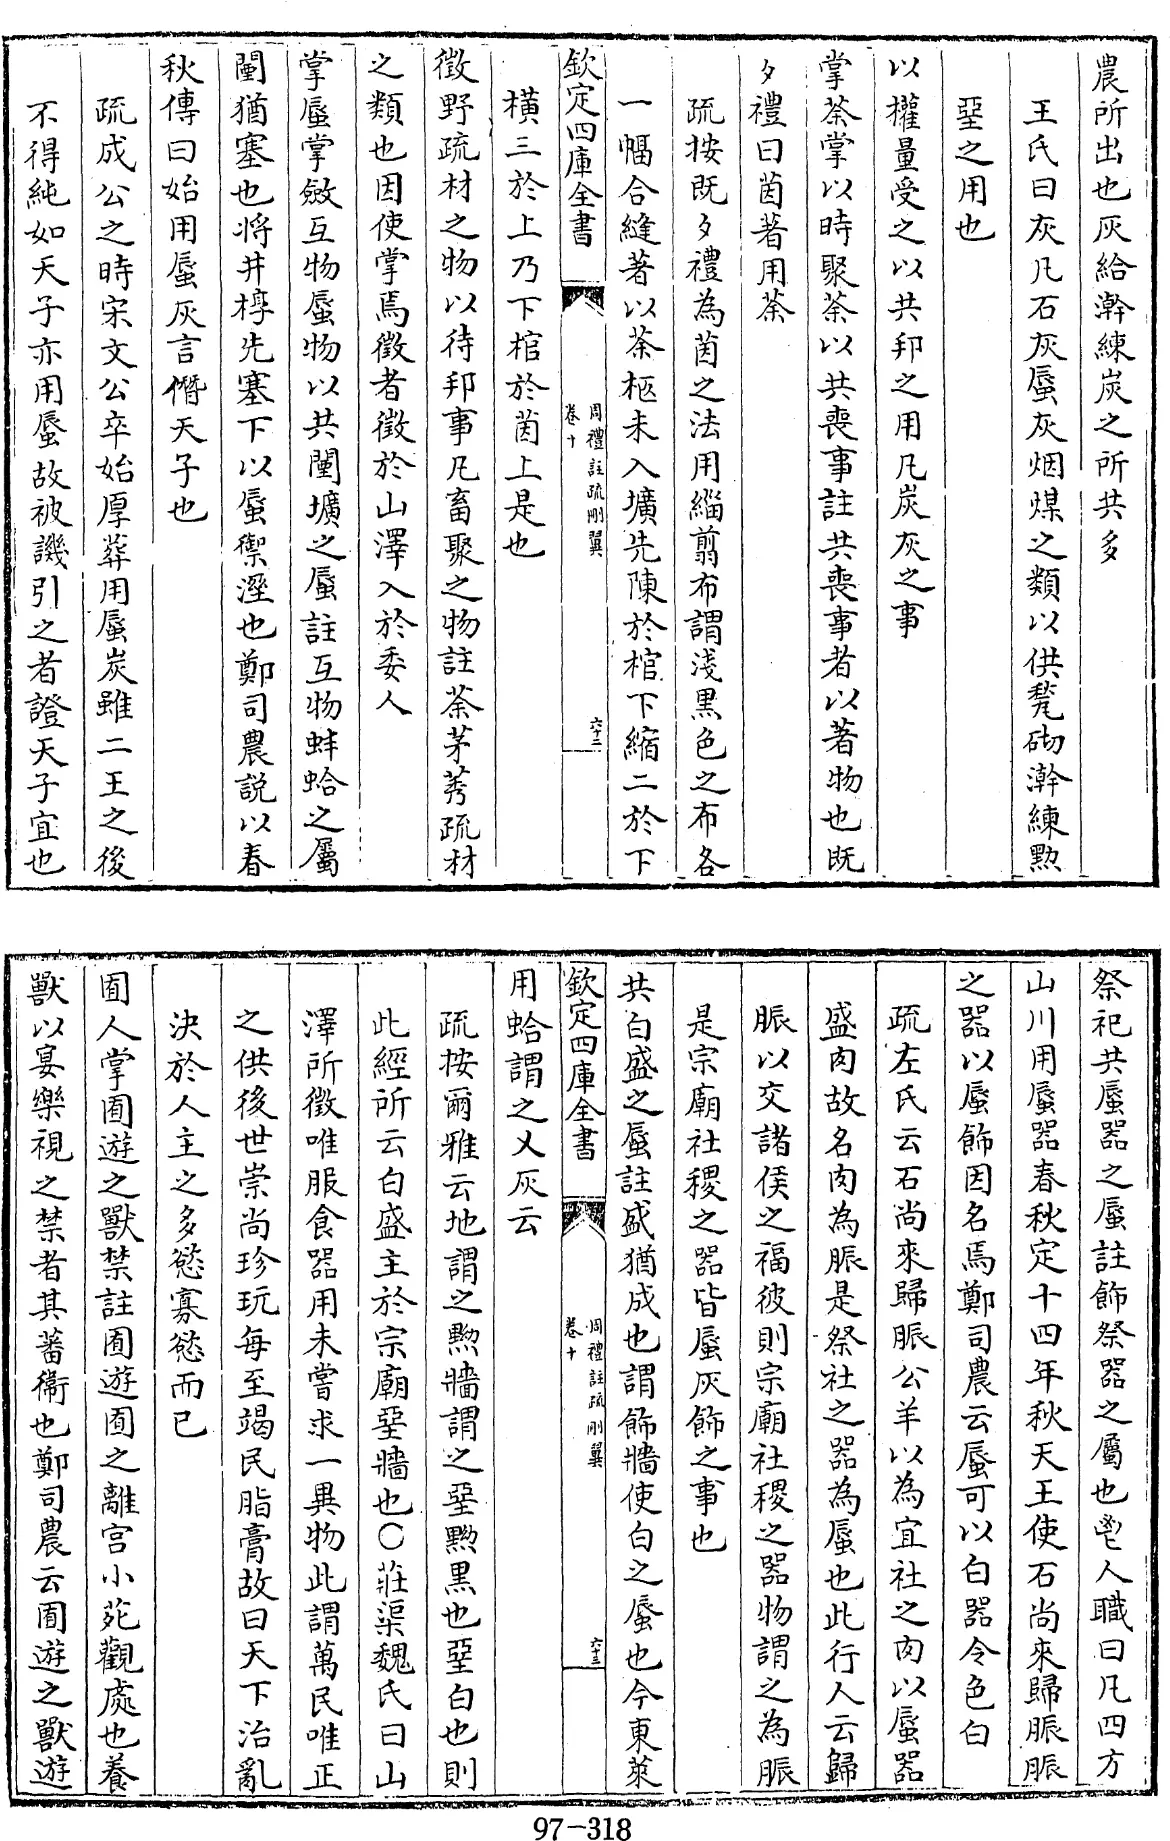 農所出也灰給澣練炭之所共多
王氏曰灰凡石灰蜃灰烟煤之類以供甃砌澣練黝
堊之用也
以權量受之以共邦之用凡炭灰之事
掌荼掌以時聚荼以共喪事註共喪事者以著物也既
夕禮曰茵著用荼
疏按既夕禮為茵之法用緇翦布謂淺黑色之布各
一幅合縫著以荼柩未入壙先陳於棺下縮二於下
欽定四庫全書
周禮註疏刪翼
卷十
六十二
橫三於上乃下棺於茵上是也
徵野疏材之物以待邦事凡畜聚之物註荼茅莠疏材
之類也因使掌焉徵者徵於山澤入於委人
掌蜃掌斂互物蜃物以共闉壙之蜃註互物蚌蛤之屬
闉猶塞也將井椁先塞下以蜃禦溼也鄭司農説以春
秋傳曰始用蜃灰言僭天子也
疏成公之時宋文公卒始厚葬用蜃炭雖二王之後
不得純如天子亦用蜃故被譏引之者證天子宜也
祭祀共蜃器之蜃註飾祭器之屬也鬯人職曰凡四方
山川用蜃器春秋定十四年秋天王使石尚來歸脤脤
之器以蜃飾因名焉鄭司農云蜃可以白器令色白
疏左氏云石尚來歸脤公羊以為宜社之肉以蜃器
盛肉故名肉為脤是祭社之器為蜃也此行人云歸
脤以交諸侯之福彼則宗廟社稷之器物謂之為脤
是宗廟社稷之器皆蜃灰飾之事也
共白盛之蜃註盛猶成也謂飾牆使白之蜃也今東萊
欽定四庫全書
周禮註疏刪翼
卷十
六十三
用蛤謂之乂灰云
疏按爾雅云地謂之黝牆謂之堊黝黑也堊白也則
此經所云白盛主於宗廟堊牆也○莊渠魏氏曰山
澤所徵唯服食器用未嘗求一異物此謂萬民唯正
之供後世崇尚珍玩每至竭民脂膏故曰天下治亂
決於人主之多慾寡慾而已
囿人掌囿遊之獸禁註囿遊囿之離宫小苑觀處也養
獸以宴樂視之禁者其蕃衞也鄭司農云囿遊之獸遊
97-318